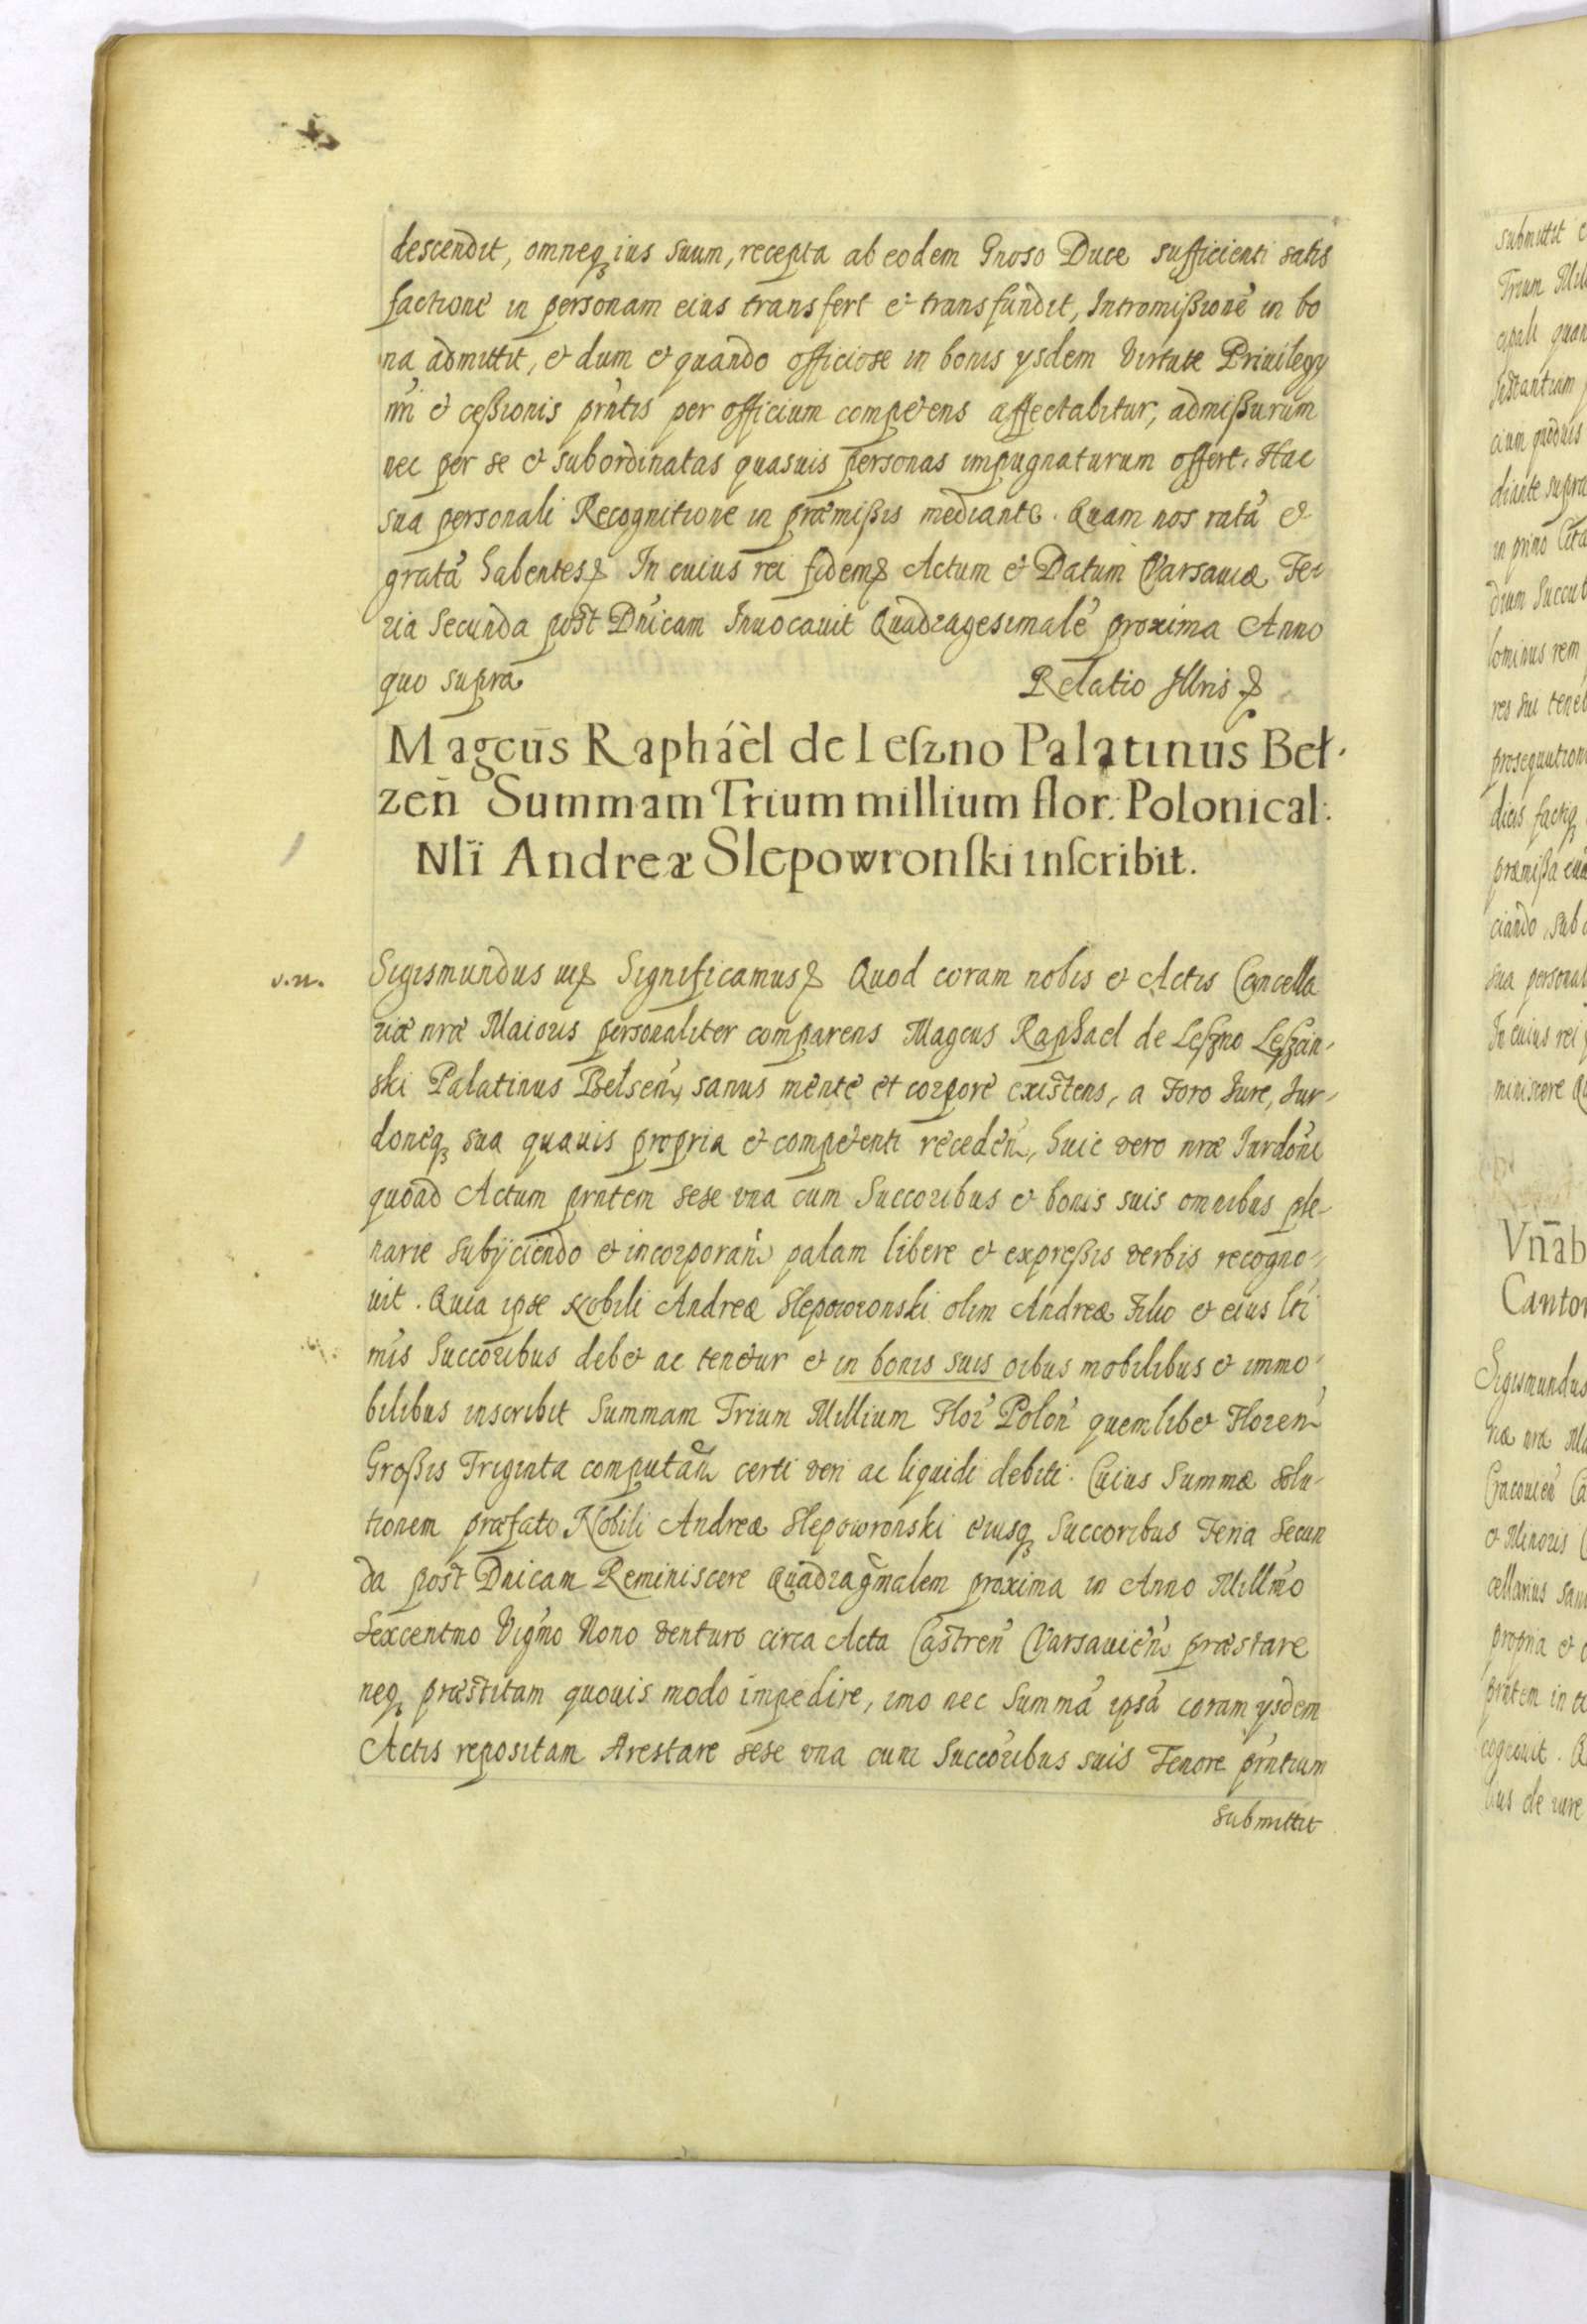 descendit, omneqꝫ ius suum, recepta ab eodem Gnoso Duce sufficienti satis
factione in personam eius transfert et transfundit, Intromißionē in bo
na admittit, et dum et quando officiose in bonis ysdem virtute Priuilegy
nri et ceßionis prntis per officium competens affectabitur, admißurum
nec per se et subordinatas quasuis personas impugnaturum offert. Hac
sua personali Recognitione in præmißis mediante. Quam nos ratā et
gratā habentes In cuius rei fidem Actum et Datum Varsauiæ Fe-
ria Secunda post Dnicam Inuocauit Quadragesimalē proxima Anno
quo supra
Relatio Illris
Magcus Raphaèl de Leszno Palatinus Beł-
zen̄ Summam Trium millium flor: Polonical:
Nli Andreæ Slepowronski inscribit.
v.n.
Sigismundus Significamus Quod coram nobis et Actis Cancella
riæ nræ Maioris personaliter comparens Magcus Raphael de Leszno Leszcin-
ski Palatinus Belsen, sanus mente et corpore existens, a Foro Iure, Iur-
doneqꝫ sua quauis propria et competenti receden, huic vero nræ Iurdoni
quoad Actum prntem sese vna cum Succoribus et bonis suis omnibus ple-
narie subyciendo et incorporan palam libere et expreßis verbis recogno-
uit. Quia ipse Nobili Andreæ Slepowronski olim Andreæ Filio et eius lti
mis Succoribus debet ac tenetur et in bonis suis oibus mobilibus et immo-
bilibus inscribit Summam Trium Millium Flor Polon quemlibet Floren
Großis Triginta computan certi veri ac liquidi debiti. Cuius Summæ solu-
tionem præfato Nobili Andreæ Slepowronski eiusqꝫ Succoribus Feria Secun
da post Dnicam Reminiscere Quadragmalem proxima in Anno Millmo
Sexcentmo Vigmo Nono venturo circa Acta Castren Varsauien præstare
neqꝫ præstitam quouis modo impedire, imo nec Summā ipsā coram ysdem
Actis repositam Arestare sese vna cum Succoribus suis Tenore prntium
submittit